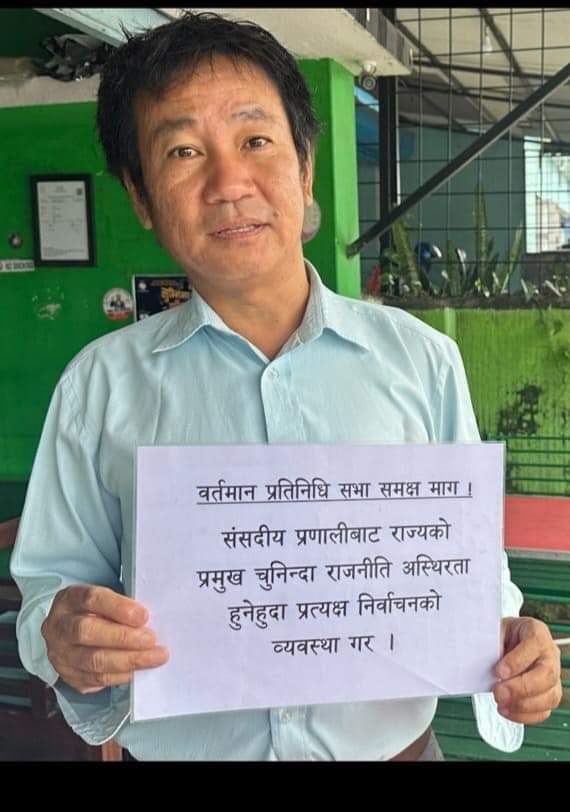 वर्तमान प्रतिनिधि सभा समक्ष माग !
संसदीय प्रणालीबाट राज्यको
प्रमुख चुनिन्दा राजनीति अस्थिरता
हुनेहुदा प्रत्यक्ष निर्वाचनको
व्यवस्था गर ।